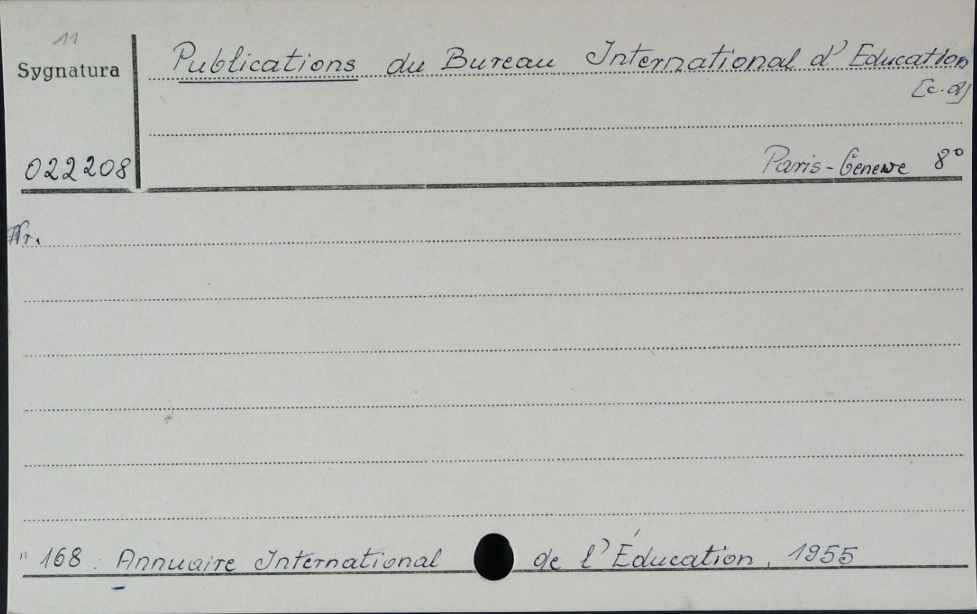 11
Sygnatura Publications du Bureau International d'Education
[c.d]
022208 Paris-Geneve 8°
Nr.
" 168. Annuaire International de l'Éducation, 1955